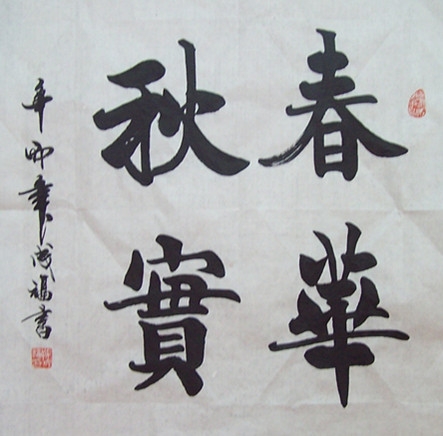 春華
秋實
辛卯年福書